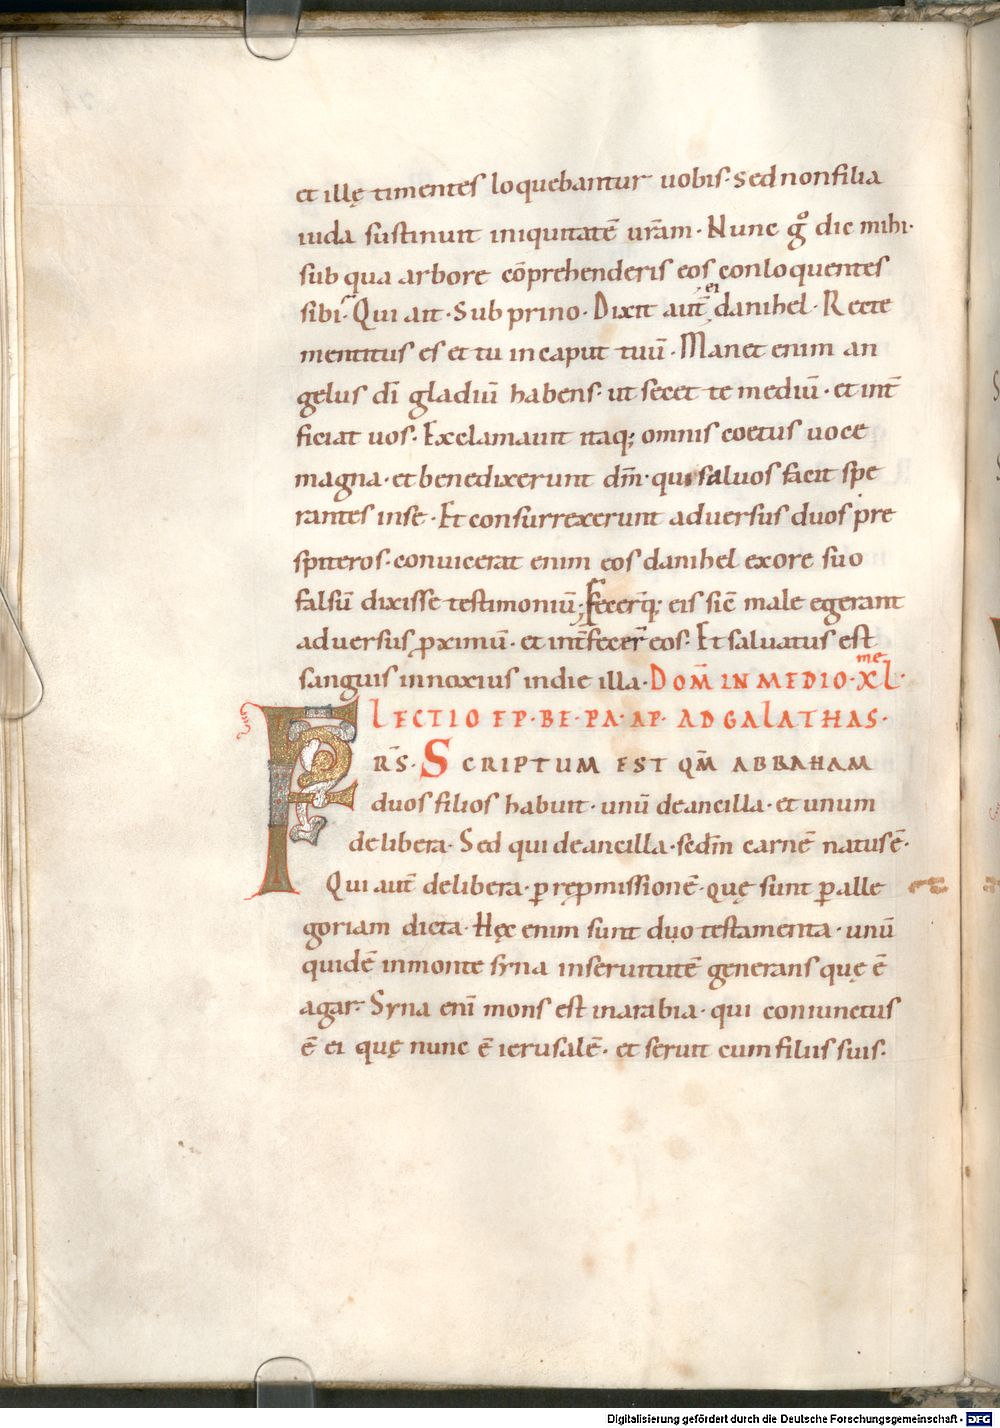 et illę timentes loquebantur uobis· sed non filia
iuda sustinuit iniquitatē ur̄am· Nunc gͦ dic mihi·
sub qua arbore cōprehenderis eos conloquentes
sibi· Qui ait· Sub prino· Dixit aut̄ ei danihel· Recte
mentitus es et tu in caput tuū· Manet enim an
gelus dī gladiū habens· ut secet te mediū· et int̄
ficiat uos· Exclamauit itaq; omnis coetus uoce
magna· et benedixerunt dm̄· qui saluos facit spe
rantes in se· Et consurrexerunt aduersus duos pre
spiteros· conuicerat enim eos danihel ex ore suo
falsū dixisse testimoniū; fecer̄q; eis sic̄ male egerant
aduersus ꝓximū· et int̄fecer̄ eos· Et saluatus est
sanguis innoxius in die illa· DOM̄ IN MEDIO· XLme·
LECTIO EP· BE· PA· AP· AD GALATHAS·
FR̄S· SCRIPTUM EST QM̄ ABRAHAM
duos filios habuit· unū de ancilla· et unum
de libera· Sed qui de ancilla· sedm̄ carnē natus ē·
Qui aut̄ de libera· ꝑ rep̱missionē· quę sunt ꝑ alle
goriam dicta· Hęc enim sunt duo testamenta· unū
quidē in monte syna in seruitutē generans quę ē
agar· Syna enī mons est in arabia· qui coniunctus
ē ei quę nunc ē ierusalē· et seruit cum filiis suis·
Digitalisierung gefördert durch die Deutsche Forschungsgemeinschaft - DFG